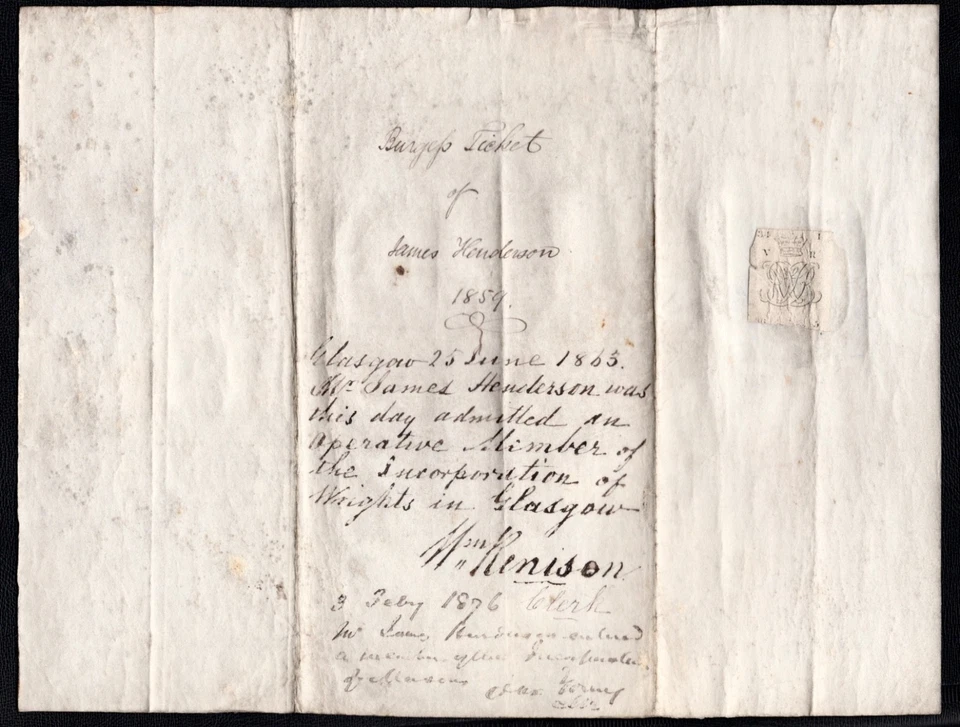 Burgess Ticket
of
James Henderson
1859.
Glasgow 25 June 1863.
Mr James Henderson was
this day admitted an
operative Member of
the Incorporation of
Wrights in Glasgow
Wm Renison
Clerk
3 Feby 1876
Mr James Henderson entered
a member of the Incorporation
of Masons
V R